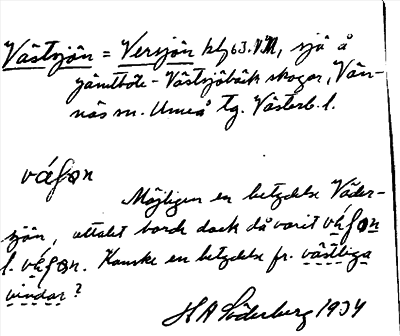 Västsjön = Versjön kbl 63. V.N, sjö å
Jämtböle - Västsjöbäck skogar, Vän-
näs sn. Umeå tg. Västerb. l.
váʃøn
Möjligen en betydelse Väder-
sjön, uttalet borde dock då varit
l. Kanske en betydelse fr. västliga
vindar?
H A Söderberg 1934